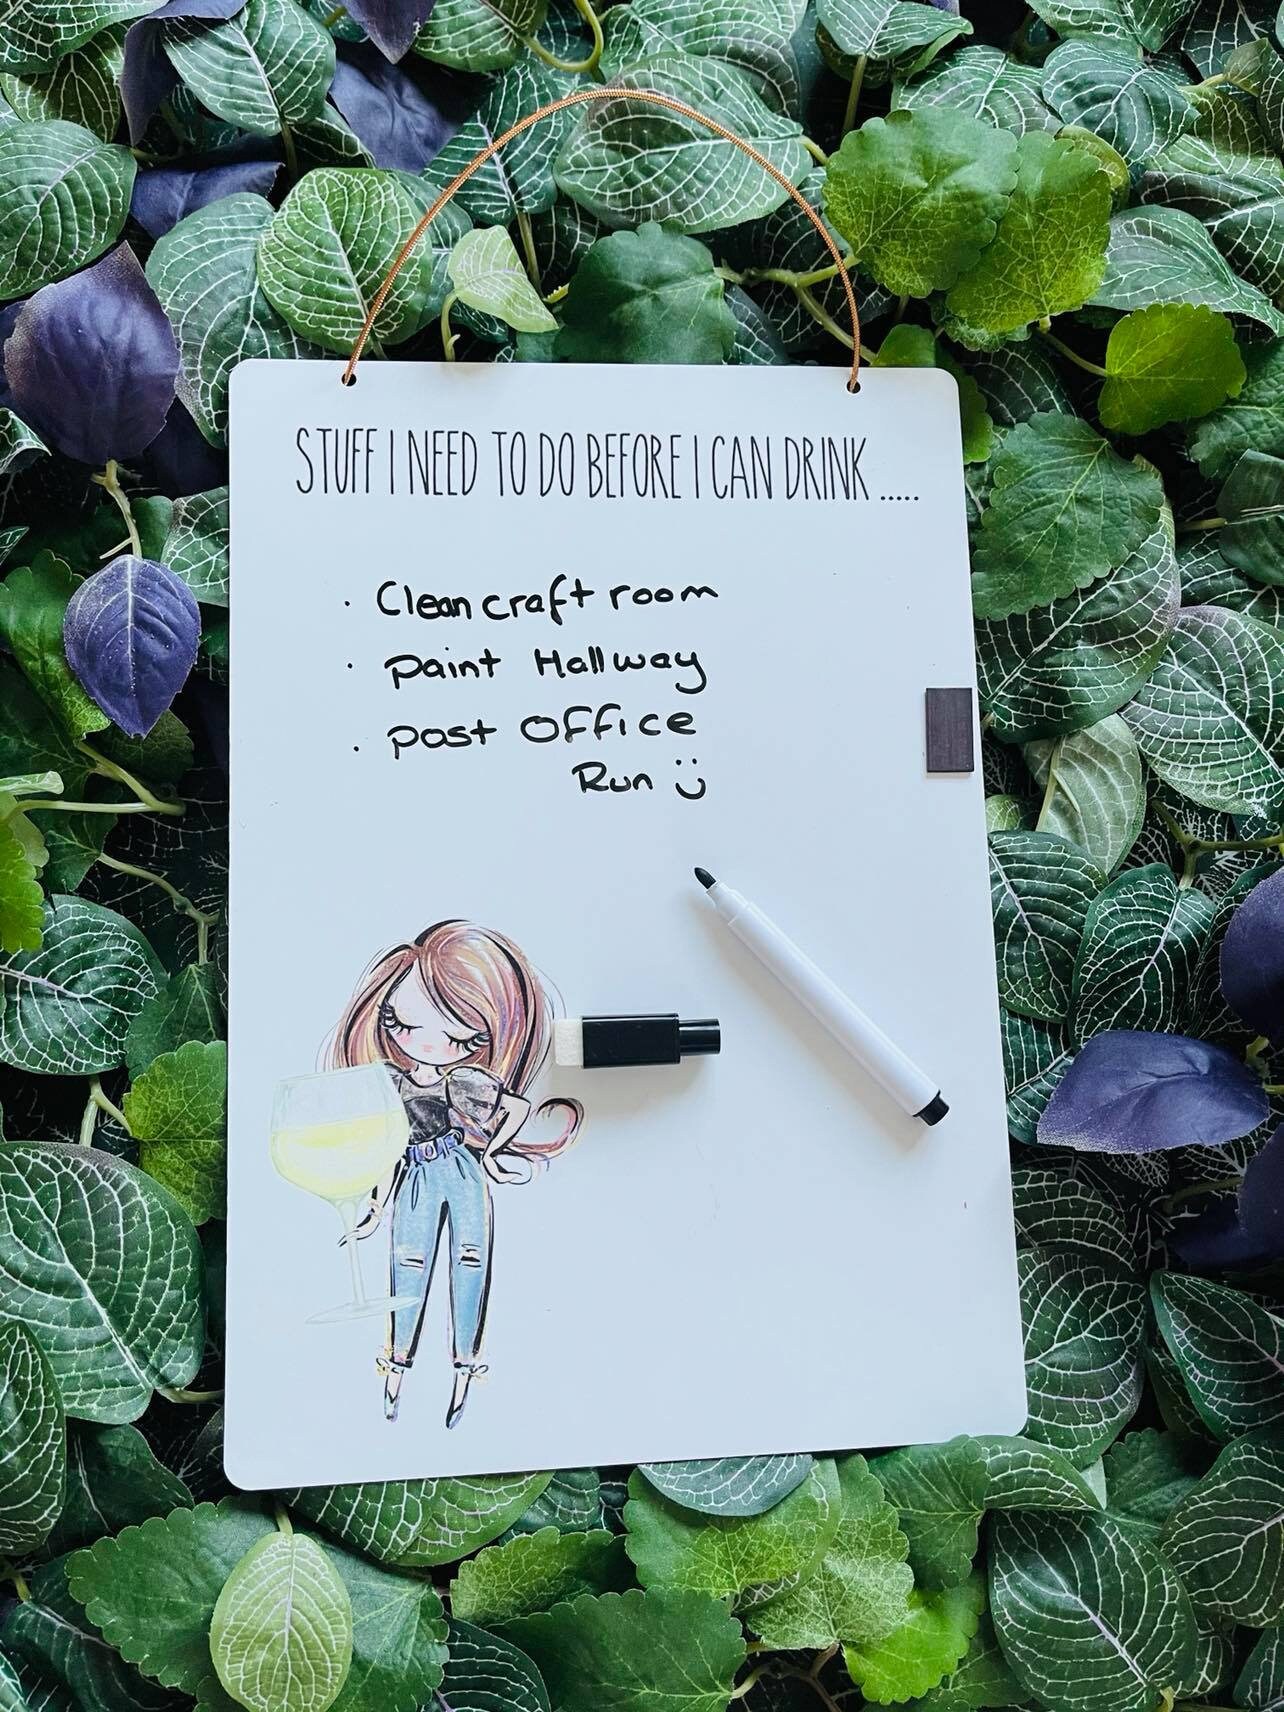 STUFF I NEED TO DO BEFORE I CAN DRINK .....
· Clean craft room
· paint Hallway
· post OFFice
Run ü